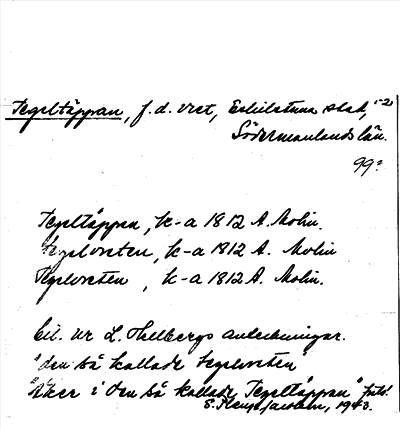 Tegeltäppan, f.d. vret, Eskilstuna stad, 1-2
Södermanlands län.
99:
Tegeltäppan, k-a 1812 A. Molin.
Tegelvreten, k-a 1812 A. Molin
Tegelvreten, k-a 1812 A. Molin.
Cit. ur L. Hellbergs anteckningar.
"den så kallade tegelvreten"
"Åker i den så kallade Tegeltäppan"
1943.